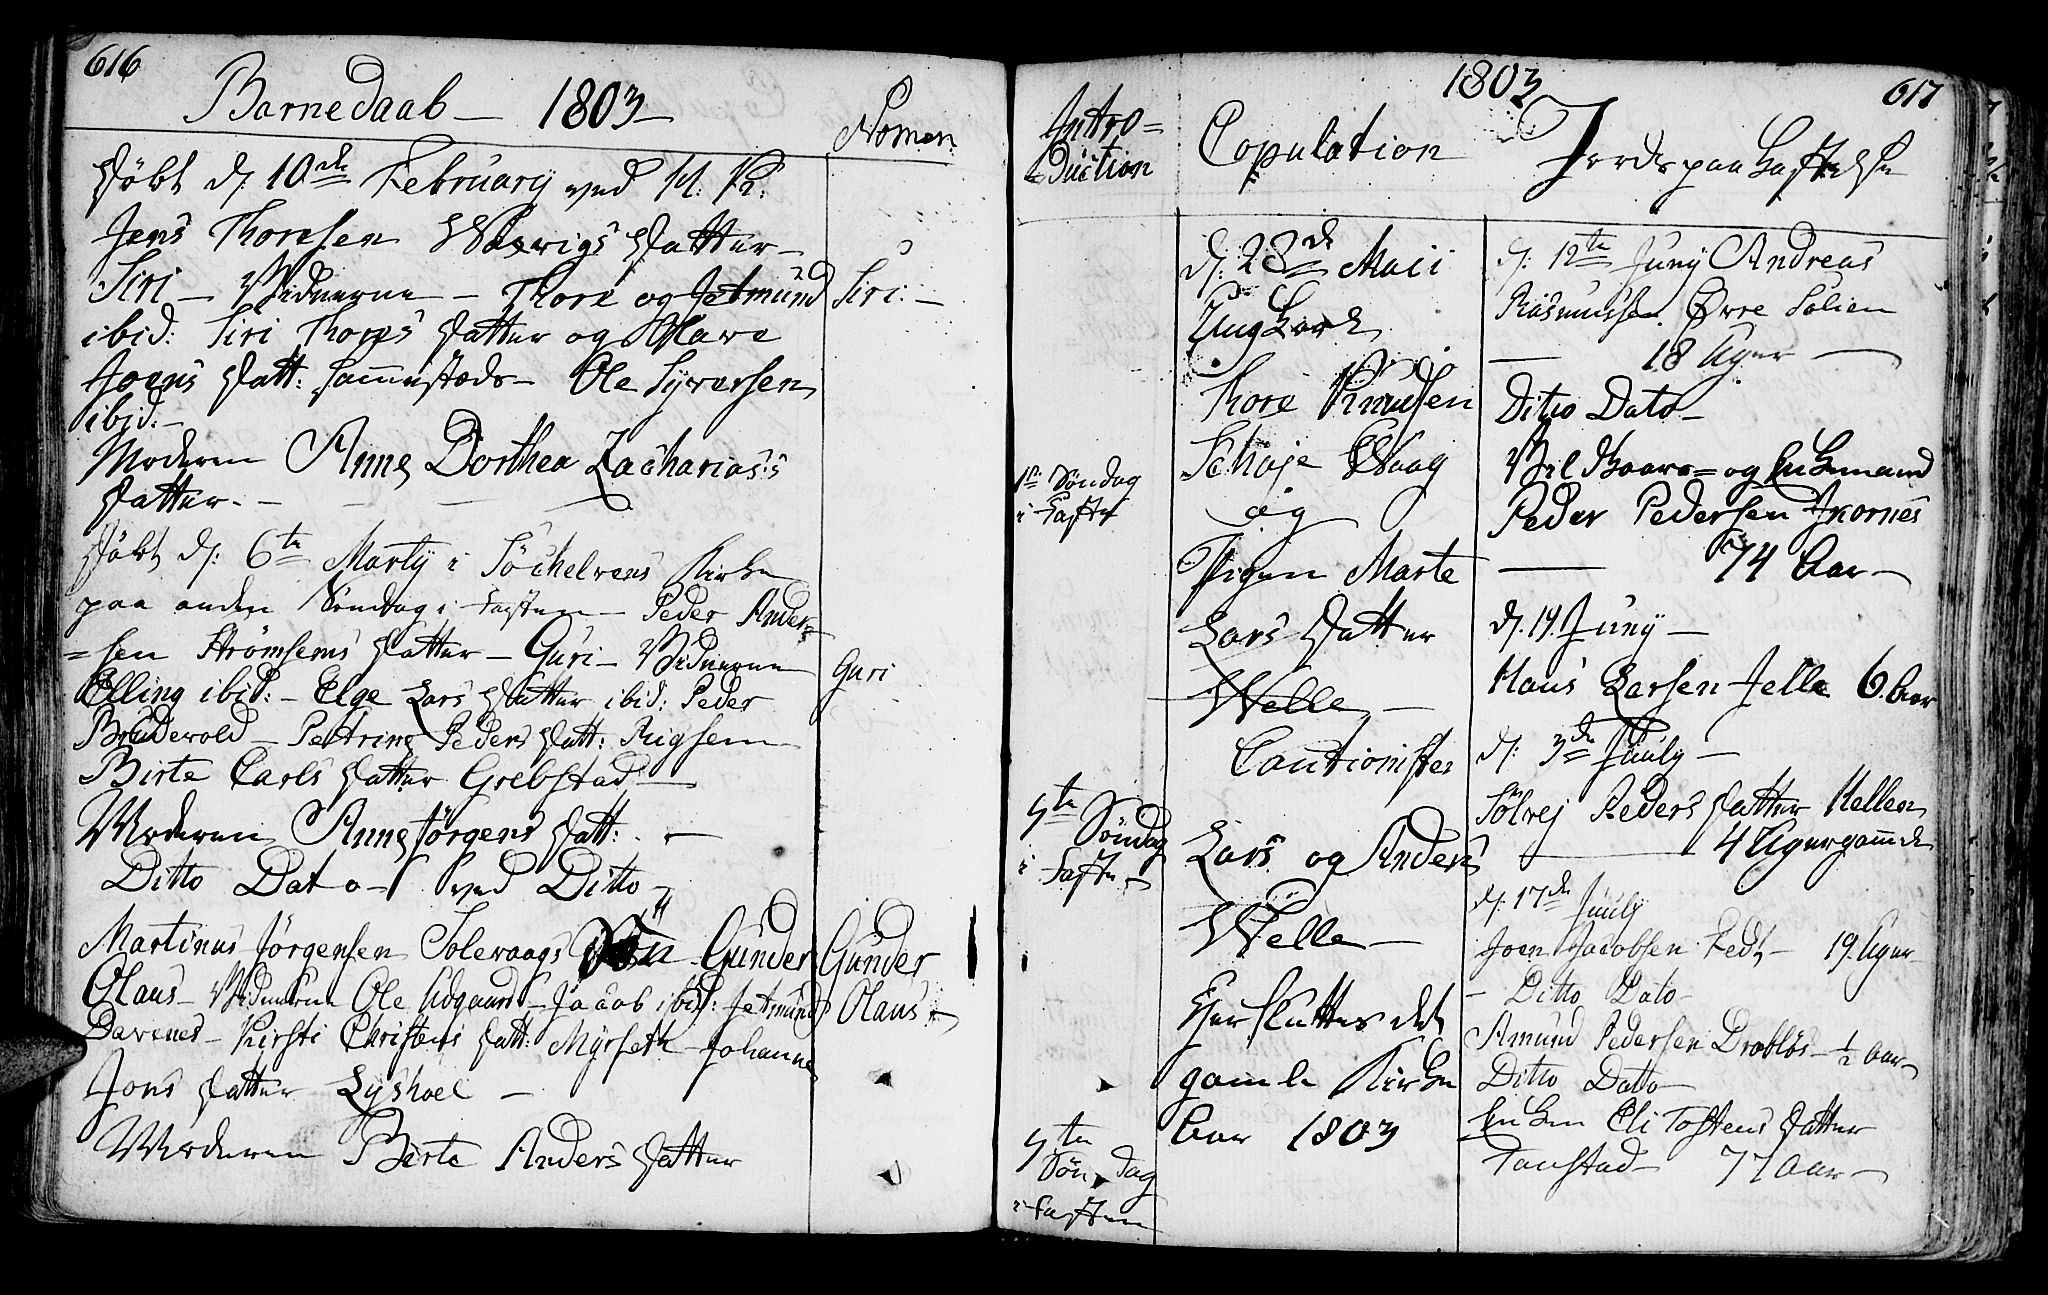 616
Barnedaab — 1803 —
Nomen
Døbt d: 10de February ved H: K:
Jens Thoresen Datter —
Siri — Vidnerne — Thore og Jetmund
Siri: —
ibid: Siri Thores Datter og Mare
Joens Datt: sammestæds — Ole Syversen
ibid: —
Moderen Anne Dorthea Zacharias:s
Datter. —
Døbt d: 6te Marty i Söchelvens Kirke
paa anden Søndag i Fasten — Peder Ander=
=sen Strømsems Datter — Guri — Vidnerne
Guri
Elling ibid: — Elge Lars Datter ibid: Peder
Brudevold — Petrine Peders Datt: Rigsem
Birte Carls Datter Grebstad —
Moderen Anne Jørgens Datt: —
Ditto Dato — ved Ditto —
Martinus Jørgensen Solevaags Søn Gunder
Gunder
Olaus — Vidnerne Ole Udgaard — Jacob ibid: Jetmund
Olaus —
Davenes — Kirsti Christens Datt: Myrseth — Johanne
Jons Datter Lyshoel —
Moderen Birte Anders Datter
1803
617
Intro=
=duction
Copulation
Jordspaakastelse
1ste Søndag
i Faste
5te Søndag
i Faste
5te
Søndag
i Fasten
d: 28de Maii
Ung Karl
Thore Knudsen
Schaje Waag
og
Pigen Marte
Lars Datter
Welle —
Cautionister
Lars og Anders
Welle —
Her sluttes det
gamle Kirke
Aar 1803
d: 12te Juny Andreas
Rasmussen Øvre Solien
— 18 Uger —
Ditto Dato —
Vel Baarne= og Enkemand
Peder Pedersen Ikornes
— 74 Aar —
d. 19. Juny —
Hans Larsen Jelle 6. Aar
d: 3de July —
Sølvej Peders Datter Hellen
— 4 Uger gammel
d: 17de July
Joen Jacobsen Fedt — 19. Uger
— Ditto Dato —
Amund Pedersen Drabløs — ½ Aar —
Ditto Dato —
Enken Eli Tostens Datter
Tanstad — 77 Aar —